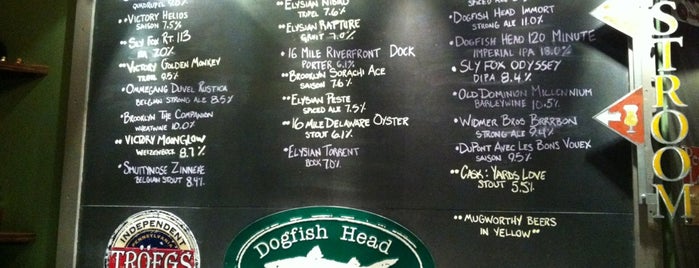 QUADRUPEL 9.7%
•• VICTORY HELIOS
SAISON 7.5%
• SLY FOX RT. 113
IPA 7.0%
•• VICTORY GOLDEN MONKEY
TRIPEL 9.5%
• OMMEGANG DUVEL RUSTICA
BELGIAN STRONG ALE 8.5%
• BROOKLYN THE COMPANION
WHEATWINE 10.0%
•• VICTORY MOONGLOW
WEIZENBOCK 8.7%
• SMUTTYNOSE ZINNEKE
BELGIAN STOUT 8.4%
INDEPENDENT
PENNSYLVANIA
TRÖEGS
• ELYSIAN NIBIRU
TRIPEL 7.6%
•• ELYSIAN RAPTURE
7.0%
• 16 MILE RIVERFRONT DOCK
PORTER 6.1%
• BROOKLYN SORACHI ACE
SAISON 7.6%
•• ELYSIAN PESTE
SPICED ALE 7.5%
•• 16 MILE DELAWARE OYSTER
STOUT 6.1%
• ELYSIAN TORRENT
BOCK 7.0%
Dogfish Head
SPICED ALE
DOGFISH HEAD IMMORT
STRONG ALE 11.0%
• DOGFISH HEAD 120 MINUTE
IMPERIAL IPA 18.0%
• SLY FOX ODYSSEY
DIPA 8.4%
• OLD DOMINION MILLENNIUM
BARLEYWINE 10.5%
• WIDMER BROS BRRRBON
STRONG ALE 9.4%
•• DUPONT AVEC LES BONS VOUEX
SAISON 9.5%
•• CASK: YARDS LOVE
STOUT 5.5%
** MUGWORTHY BEERS
IN YELLOW**
STROOM